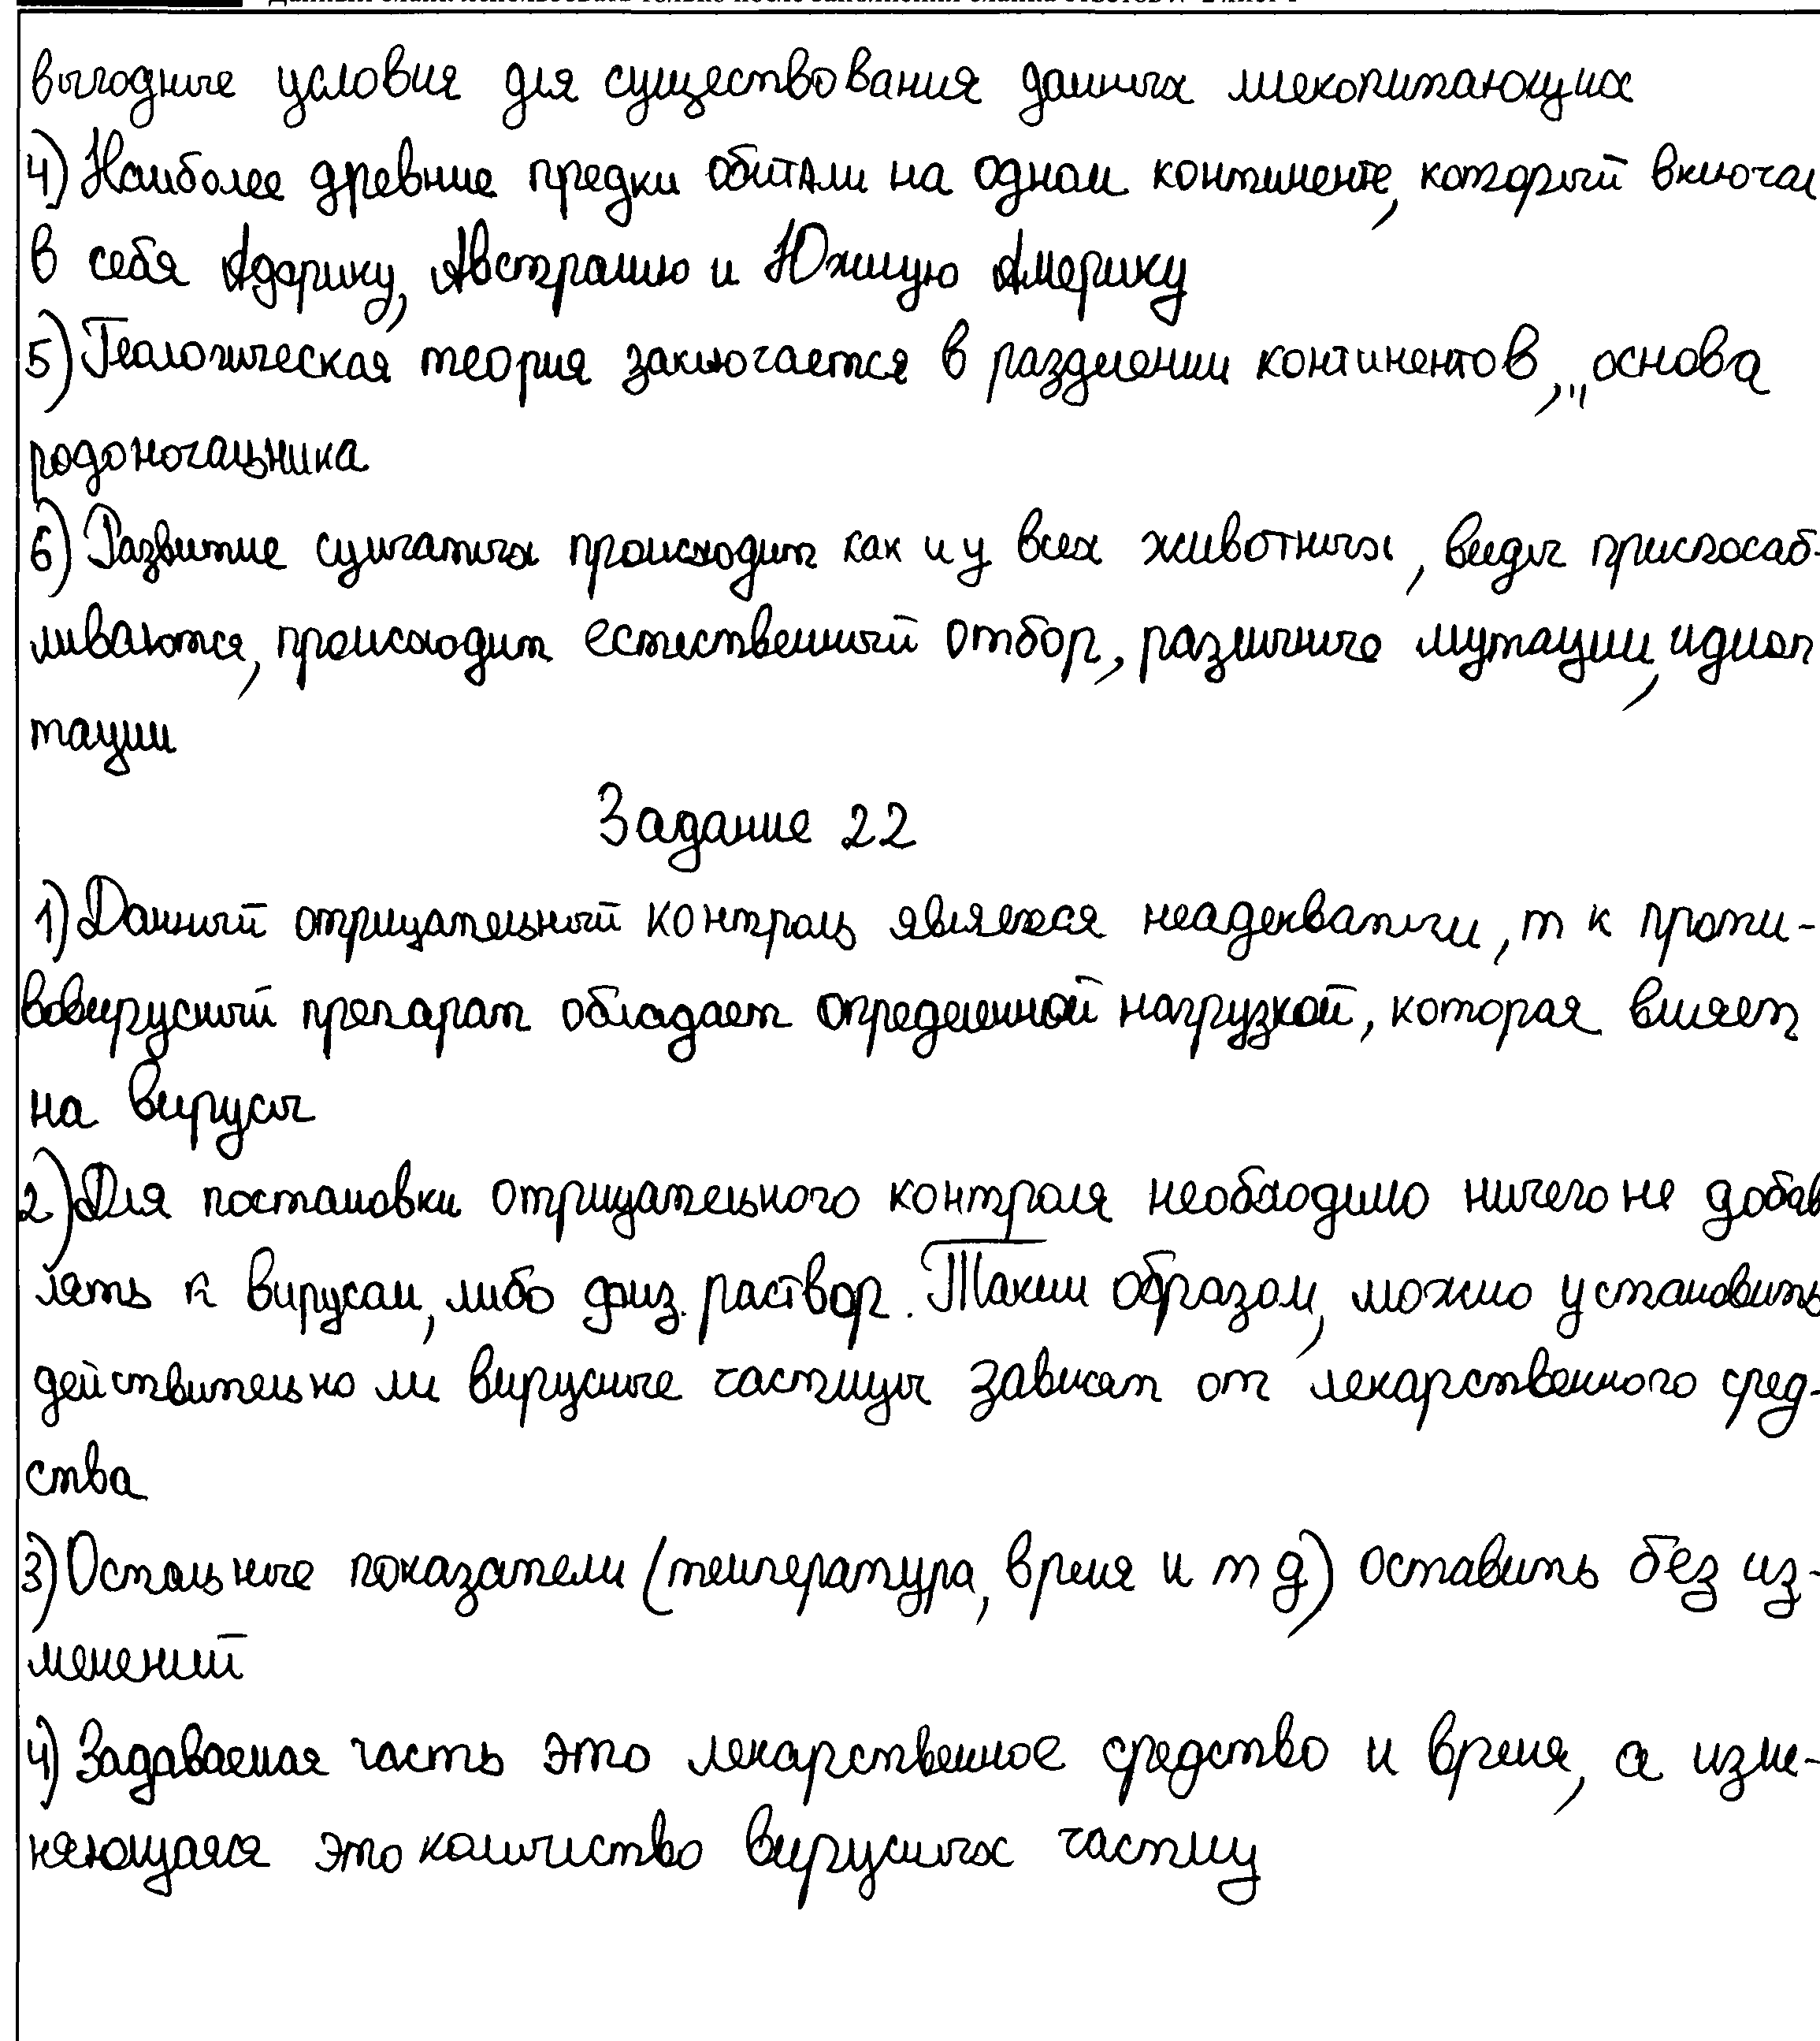 выгодные условия для существования данных млекопитающих
4) Наиболее древние предки обитали на одном континенте, который включал
в себя Африку, Австралию и Южную Америку
5) Геологическая теория заключается в разделении континентов, "основа
родоначальника
6) Развитие сумчатых происходит как и у всех животных, виды приспосаб-
ливаются, происходит естественный отбор, различные мутации, идиоп
тации
Задание 22
1) Данный отрицательный контроль является неадекватным, т к проти-
вовирусный препарат обладает определенной нагрузкой, которая влияет
на вирусы
2) Для постановки отрицательного контроля необходимо ничего не добав
лять к вирусам, либо физ. раствор. Таким образом, можно установить
действительно ли вирусные частицы зависят от лекарственного сред-
ства
3) Остальные показатели (температура, время и т д) оставить без из-
менений
4) Задаваемая часть это лекарственное средство и время, а изме-
няющаяся это количество вирусных частиц